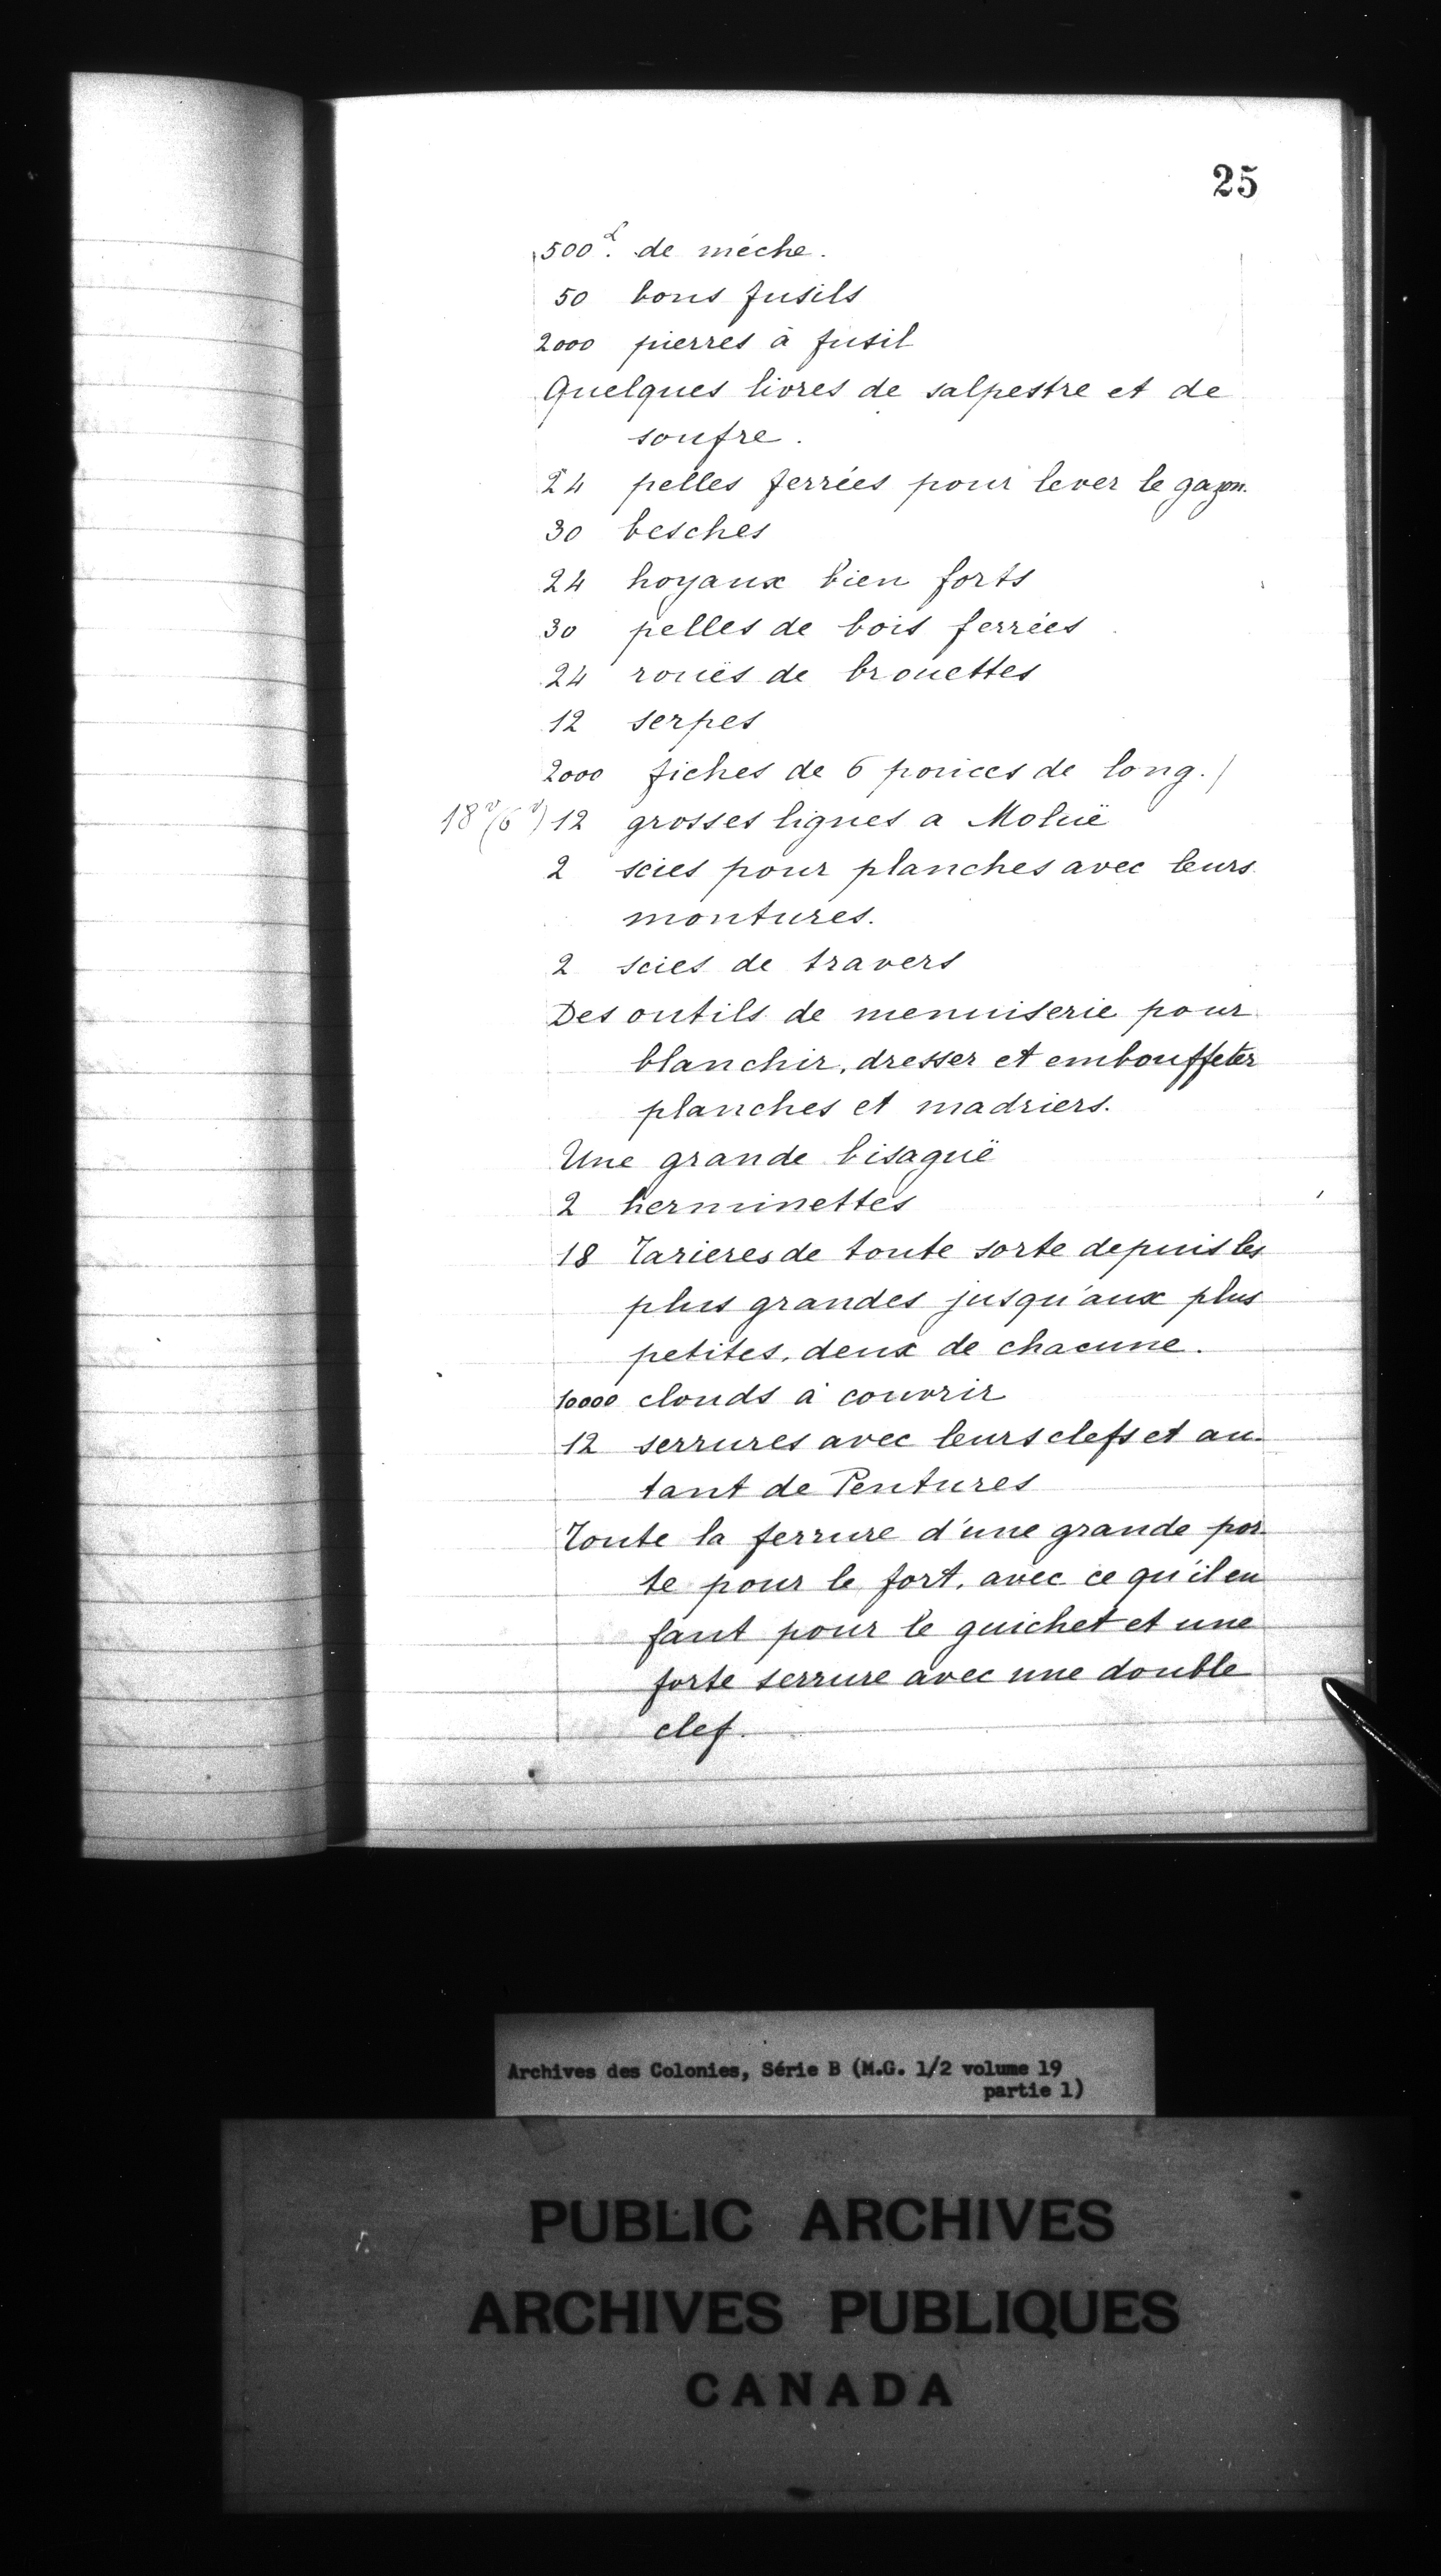 25
500 l. de méche.
50 bons fusils
2000 pierres à fusil
Quelques livres de salpestre et de
soufre.
24 pelles ferrées pour lever le gazon.
30 besches
24 hoyaux bien forts
30 pelles de bois ferrées
24 rouës de brouettes
12 serpes
2000 fiches de 6 pouces de long./
18 (6) 12 grosses lignes a Moluë
2 scies pour planches avec leurs
montures.
2 scies de travers
Des outils de menuiserie pour
blanchir, dresser et embouffeter
planches et madriers.
Une grande bisaguë
2 herminettes
18 Tarieres de toute sorte depuis les
plus grandes jusqu'aux plus
petites, deux de chacune.
10000 clouds à couvrir
12 serrures avec leurs clefs et au-
tant de Pentures
Toute la ferrure d'une grande por-
te pour le fort, avec ce qu'il en
faut pour le guichet et une
forte serrure avec une double
clef.
Archives des Colonies, Série B (M.G. 1/2 volume 19
partie 1)
PUBLIC ARCHIVES
ARCHIVES PUBLIQUES
CANADA